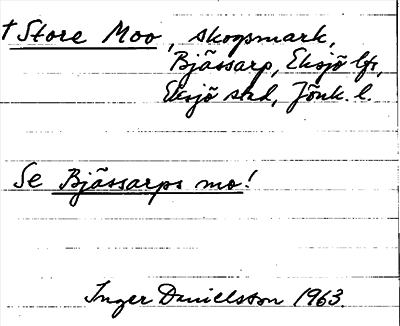 † Store Moo, skogsmark,
Bjässarp, Eksjö lfs,
Eksjö stad, Jönk. l.
Se Bjässarps mo!
Inger Danielsson 1963.